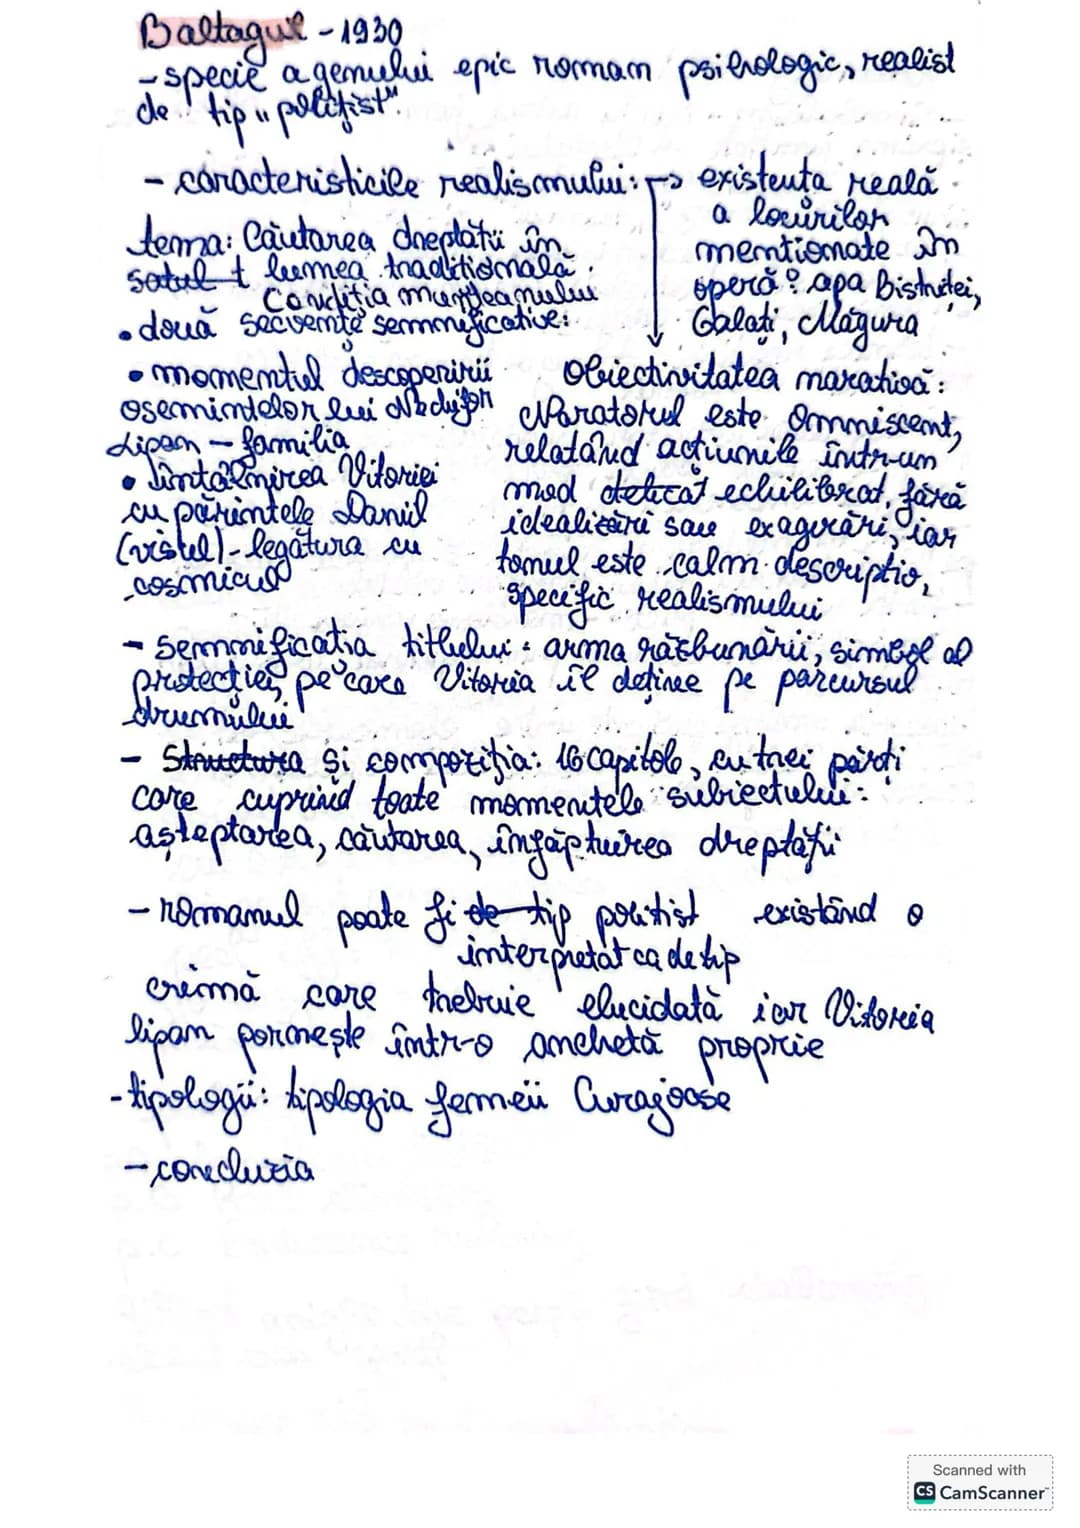 Baltagul - 1930
- specie a genului epic roman psihologic, realist
de tip „polițist"
- caracteristicile realismului: → existența reală
a locurilor
menționate în
operă: apa Bistriței,
Galați, Măgura
tema: Căutarea dreptății în
satul + lumea tradițională.
Condiția munteanului
• două secvențe semnificative:
• momentul descoperirii
osemintelor lui Nechifor
Lipan - familia
• întâlnirea Vitoriei
cu părintele Daniil
(visul) - legătura cu
cosmicul
obiectivitatea narativă:
Naratorul este Omniscent,
relatând acțiunile într-un
mod echilibrat, fără
idealizări sau exagerări, iar
tonul este calm descriptiv,
specific realismului
- semnificatia titlului: arma răzbunării, simbol al
protecției, pe care Vitoria îl deține pe parcursul
drumului
- Structura și compoziția: 16 capitole, cu trei părți
care cuprind toate momentele subiectului:
așteptarea, căutarea, înfăptuirea dreptății
- romanul poate fi de tip politist existând o
interpretat ca de tip
crimă care trebuie elucidată iar Vitoria
lipan pornește într-o anchetă proprie
- tipologii: tipologia femeii Curajoase
- concluzia
Scanned with
CS CamScanner